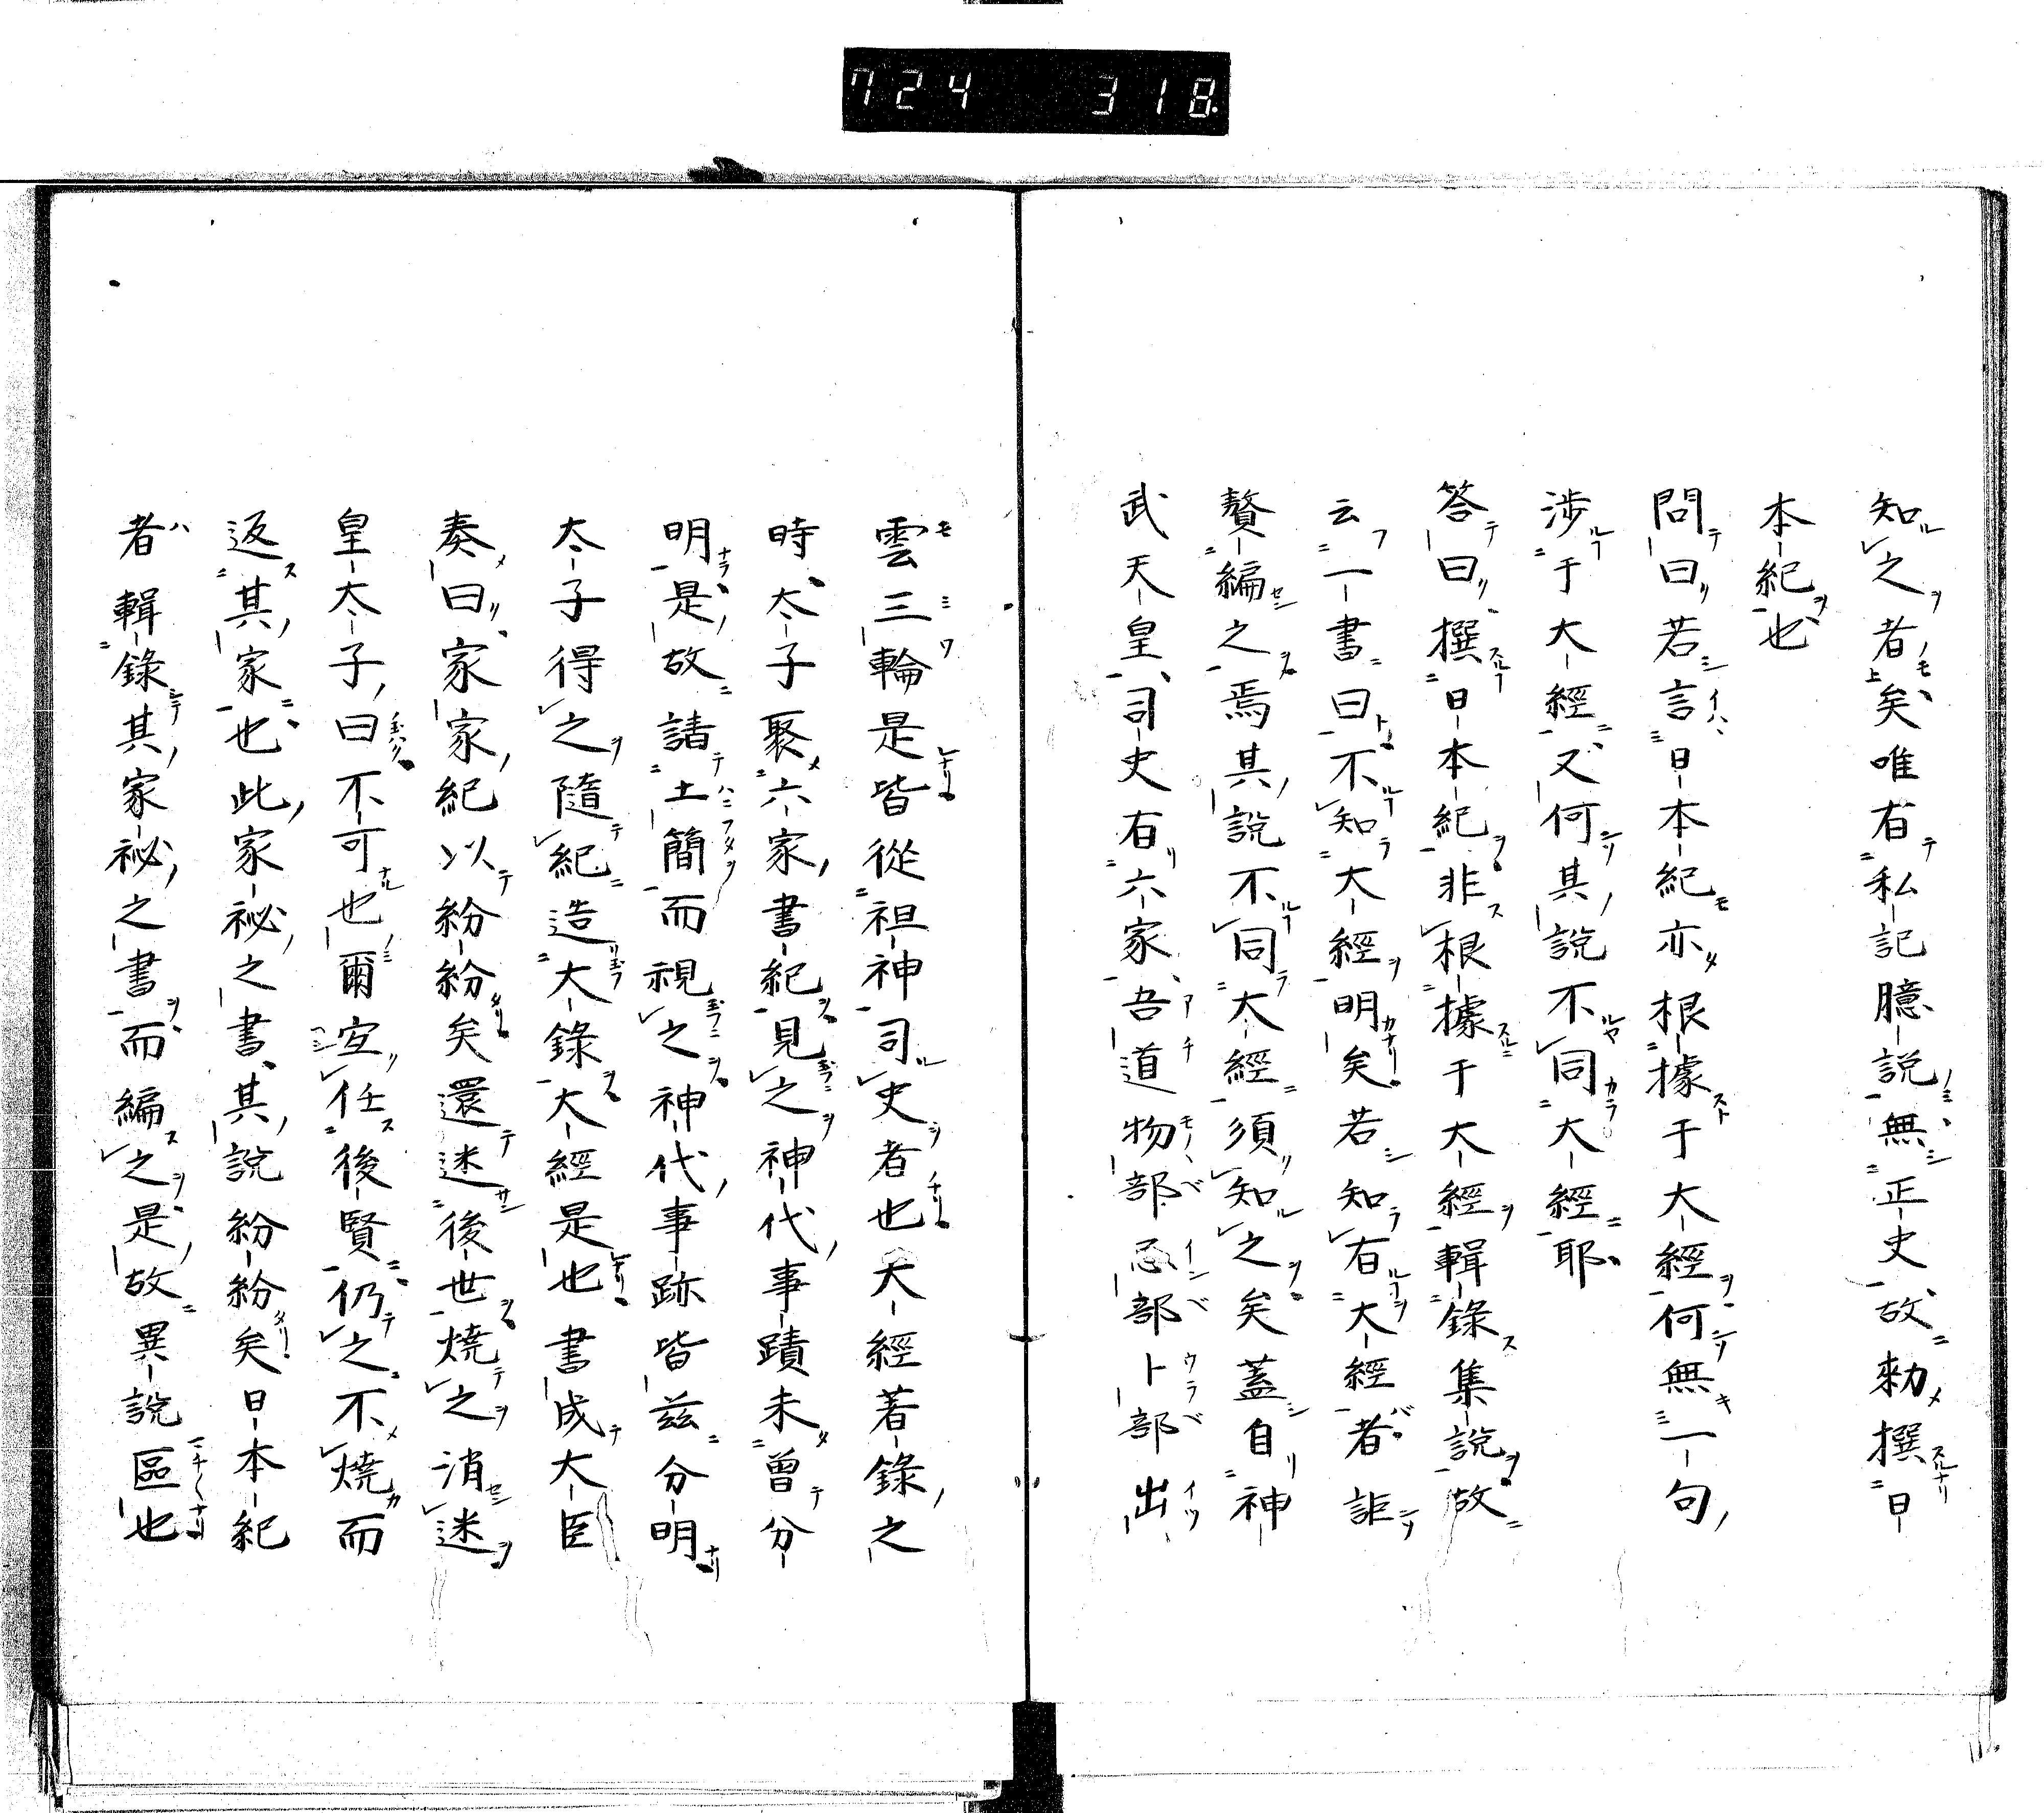 724 318
知之者矣唯有私記臆説無正史故勅撰日
本紀也
問曰若言日本紀亦根據于大經何無一句
渉于大經又何其説不同大經耶
答曰撰日本紀非根據于大經輯録集説故
云一書曰不知大經明矣若知有大經者詎
贅編之焉其説不同大經須知之矣蓋自神
武天皇司史有六家吾道物部忌部卜部出
雲三輪是皆從祖神司史者也大經著録之
時太子聚六家書紀見之神代事蹟未曾分
明是故請土簡而視之神代事跡皆茲分明
太子得之隨紀造大録大經是也書成大臣
奏曰家家紀以紛紛矣還迷後世燒之消迷
皇太子曰不可也爾宜任後賢仍之不燒而
返其家也此家祕之書其説紛紛矣日本紀
者輯録其家祕之書而編之是故異説區也